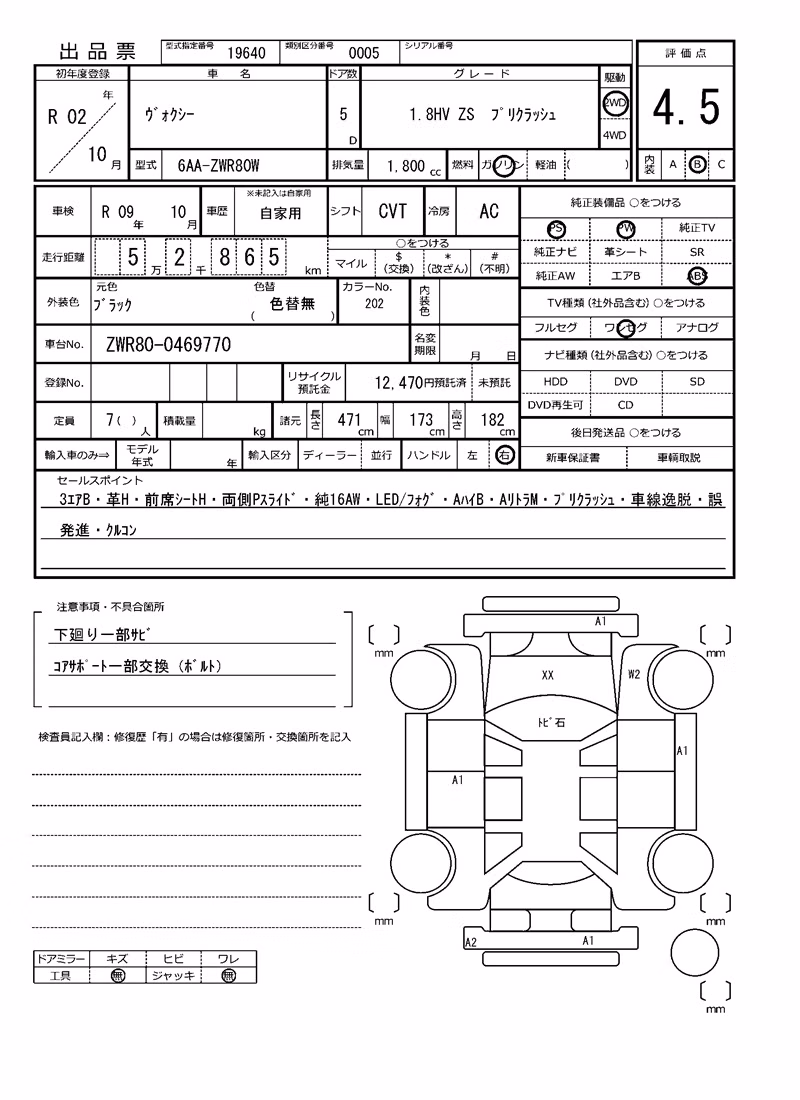 出品票 型式指定番号 19640 類別区分番号 0005 シリアル番号
初年度登録 車 名 ドア数 グレード 駆動 評価点
R 02 年 10 月 ｳﾞｫｸｼｰ 5 D 1.8HV ZS ﾌﾟﾘｸﾗｯｼｭ 2WD 4WD 4.5
型式 6AA-ZWR80W 排気量 1,800 cc 燃料 ガソリン 軽油 ( ) 内装 A B C
車検 R 09 年 10 月 車歴 ※未記入は自家用 自家用 シフト CVT 冷房 AC
純正装備品 ○をつける
PS PW 純正TV
走行距離 5 万 2 千 8 6 5 km ○をつける
マイル $ (交換) * (改ざん) # (不明)
純正ナビ 革シート SR
純正AW エアB ABS
外装色 元色 ﾌﾞﾗｯｸ 色替 ( 色替無 ) カラーNo. 202 内装色
TV種類 (社外品含む) ○をつける
フルセグ ワンセグ アナログ
車台No. ZWR80-0469770 名変期限 月 日
ナビ種類 (社外品含む) ○をつける
登録No. リサイクル預託金 12,470円預託済 未預託
HDD DVD SD
DVD再生可 CD
定員 7( ) 人 積載量 kg 諸元 長さ 471 cm 幅 173 cm 高さ 182 cm
後日発送品 ○をつける
輸入車のみ⇒ モデル年式 年 輸入区分 ディーラー 並行 ハンドル 左 右
新車保証書 車輌取説
セールスポイント
3ｴｱB・革H・前席ｼｰﾄH・両側Pｽﾗｲﾄﾞ・純16AW・LED/ﾌｫｸﾞ・AﾊｲB・AﾘﾄﾗM・ﾌﾟﾘｸﾗｯｼｭ・車線逸脱・誤
発進・ｸﾙｺﾝ
注意事項・不具合箇所
下廻り一部ｻﾋﾞ
ｺｱｻﾎﾟｰﾄ一部交換 (ﾎﾞﾙﾄ)
検査員記入欄：修復歴「有」の場合は修復箇所・交換箇所を記入
A1
mm mm
XX W2
ﾄﾋﾞ石
A1
A1
mm mm
A2 A1
mm
ドアミラー キズ ヒビ ワレ
工具 無 ジャッキ 無